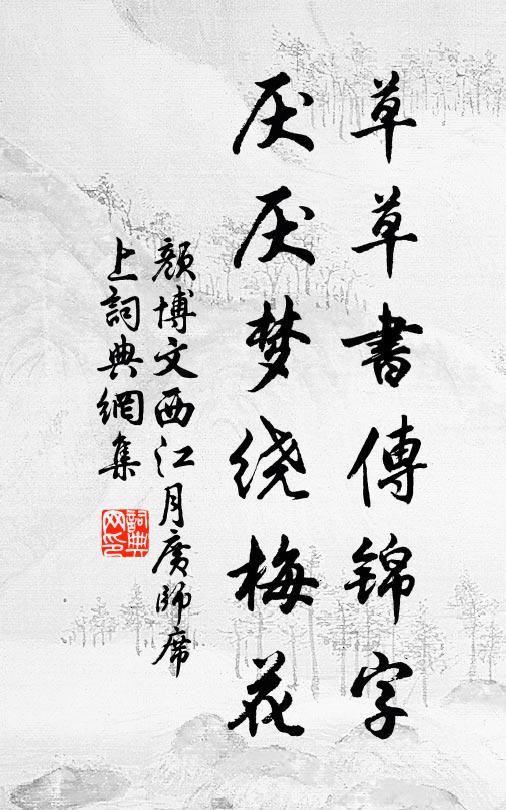 草草書傳錦字
厌厌梦绕梅花
顏博文西江月廣師席
上詞典網集
詞典
网印